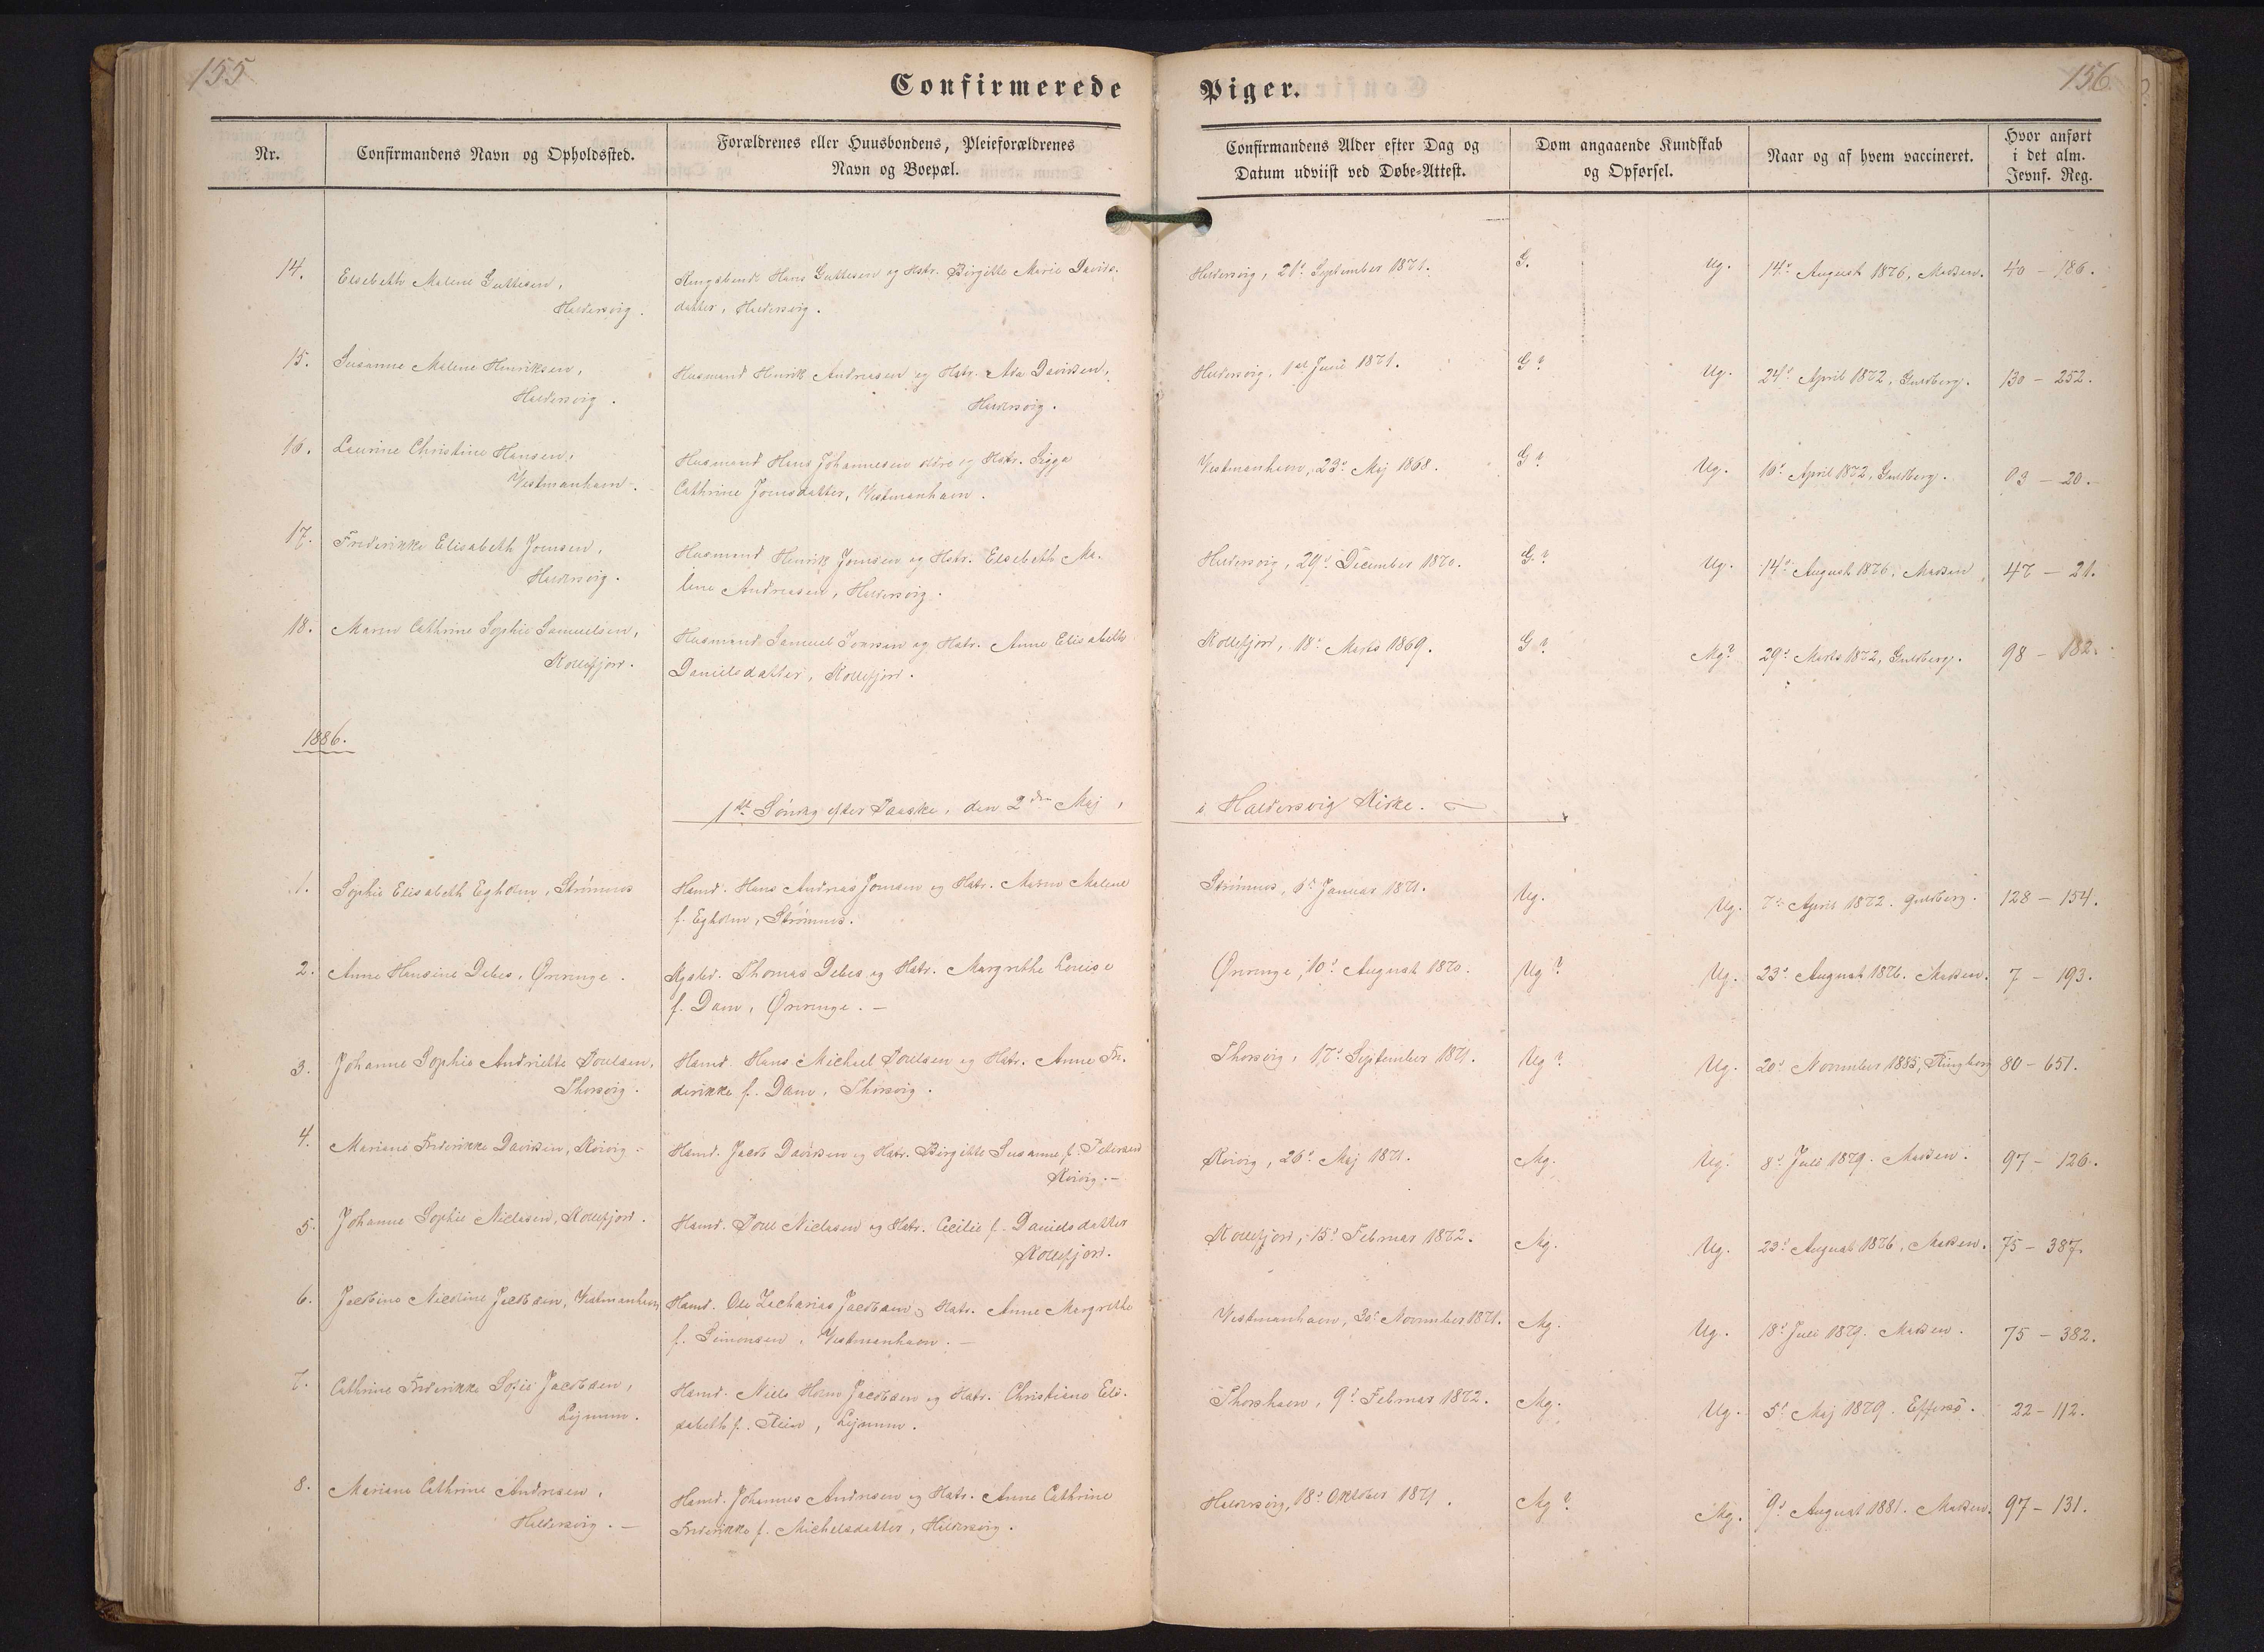 155
Confirmerede Piger.
156
Nr.
Confirmandens Navn og Opholdssted.
Forældrenes eller Huusbondens, Pleieforældrenes
Navn og Boepæl.
Confirmandens Alder efter Dag og
Datum udviist ved Døbe-Attest.
Dom angaaende Kundskab
og Opførsel.
Naar og af hvem vaccineret.
Hvor anført
i det alm.
Jevnf. Reg.
14.
Elsebeth Malene Guttesen,
Haldersvig.
Kongsbonde Hans Guttesen og Hstr. Birgitte Marie Davids-
datter, Haldersvig.
Haldersvig, 21d September 1871.
G.
Ug.
14d August 1876, Madsen.
40 - 186.
15.
Susanne Malene Henriksen,
Haldersvig.
Husmand Henrik Andreasen og Hstr. Ada Davidsen,
Haldersvig.
Haldersvig, 1st Juni 1871.
G?
Ug.
24d April 1872, Guldberg.
130 - 252.
16.
Laurine Christine Hansen,
Vestmanhavn.
Husmand Hans Johannesen ældre og Hstr. Sigga
Cathrine Joensdatter, Vestmanhavn.
Vestmanhavn, 23d Maj 1868.
G?
Ug.
16d April 1872, Guldberg.
93 - 20.
17.
Frederikke Elisabeth Joensen,
Haldersvig.
Husmand Henrik Joensen og Hstr. Elsebeth Ma-
lene Andreasen, Haldersvig.
Haldersvig, 29d December 1870.
G.?
Ug.
14d August 1876, Madsen,
47 - 21.
18.
Maren Cathrine Sophie Samuelsen,
Kollefjord.
Husmand Samuel Joensen og Hstr. Anne Elisabeth
Danielsdatter, Kollefjord.
Kollefjord, 18d Marts 1869.
G?
Mg?
29d Marts 1872, Guldberg.
98 - 182.
1886.
1st Søndag efter Paaske, den 2den Maj, i Haldersvig Kirke.
1.
Sophie Elisabeth Egholm, Strømnæs
Hsmd. Hans Andreas Joensen og Hstr. Maren Malene
f. Egholm, Strømnæs.
Strømnæs, 6d Januar 1871.
Ug.
Ug.
7d April 1872. Guldberg.
128 - 154.
2.
Anne Hansine Debes, Øreringe.
Kgsbd. Thomas Debes og Hstr. Margrethe Louise
f. Dam, Øreringe. -
Øreringe, 10d August 1870.
Ug?
Ug.
23d August 1876. Madsen.
7 - 193.
3.
Johanne Sophie Andriette Poulsen,
Thorsvig.
Hsmd. Hans Michael Poulsen og Hstr. Anne Fre-
derikke f. Dam, Thorsvig.
Thorsvig, 17d September 1871.
Ug?
Ug.
20d November 1885, Ringberg
80 - 651.
4.
Mariane Frederikke Davidsen, Kvivig.
Hsmd. Jacob Davidsen og Hstr. Birgitte Susanne f. Petersen
Kvivig. -
Kvivig, 26d Maj 1871.
Mg.
Ug.
8d Juli 1879. Madsen.
97 - 126.
5.
Johanne Sophie Niclasen, Kollefjord.
Hsmd. Poul Niclasen og Hstr. Cecilie f. Danielsdatter
Kollefjord.
Kollefjord, 15d Februar 1872.
Mg.
Ug.
23d August 1876, Madsen.
75 - 387.
6.
Jacobine Nicoline Jacobsen, Vestmanhavn
Hsmd. Ole Zacharias Jacobsen og Hstr. Anne Margrethe
f. Simonsen, Vestmanhavn. -
Vestmanhavn, 30d November 1871.
Mg.
Ug.
18d Juli 1879. Madsen.
75 - 382.
7.
Cathrine Frederikke Sofie Jacobsen,
Lejnum.
Hsmd. Niels Holm Jacobsen og Hstr. Christiane Eli-
sabeth f. Rein, Lejnum.
Thorshavn, 9d Februar 1872.
Mg.
Ug.
5d Maj 1879. Effersø.
22 - 112.
8.
Mariane Cathrine Andreasen,
Haldersvig. -
Hsmd. Johannes Andreasen og Hstr. Anne Cathrine
Frederikke f. Michelsdatter, Haldersvig.
Haldersvig, 18d Oktober 1871.
Mg?
Mg.
9d August 1881. Madsen.
97 - 131.